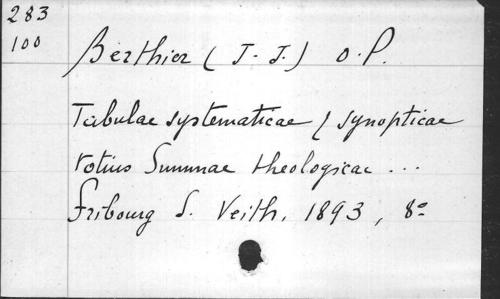 283
100
Berthier (J.-J.) O.P.
Tabulae systematicae & synopticae
totius Summae theologicae ...
Fribourg S. Veith, 1893, 8º